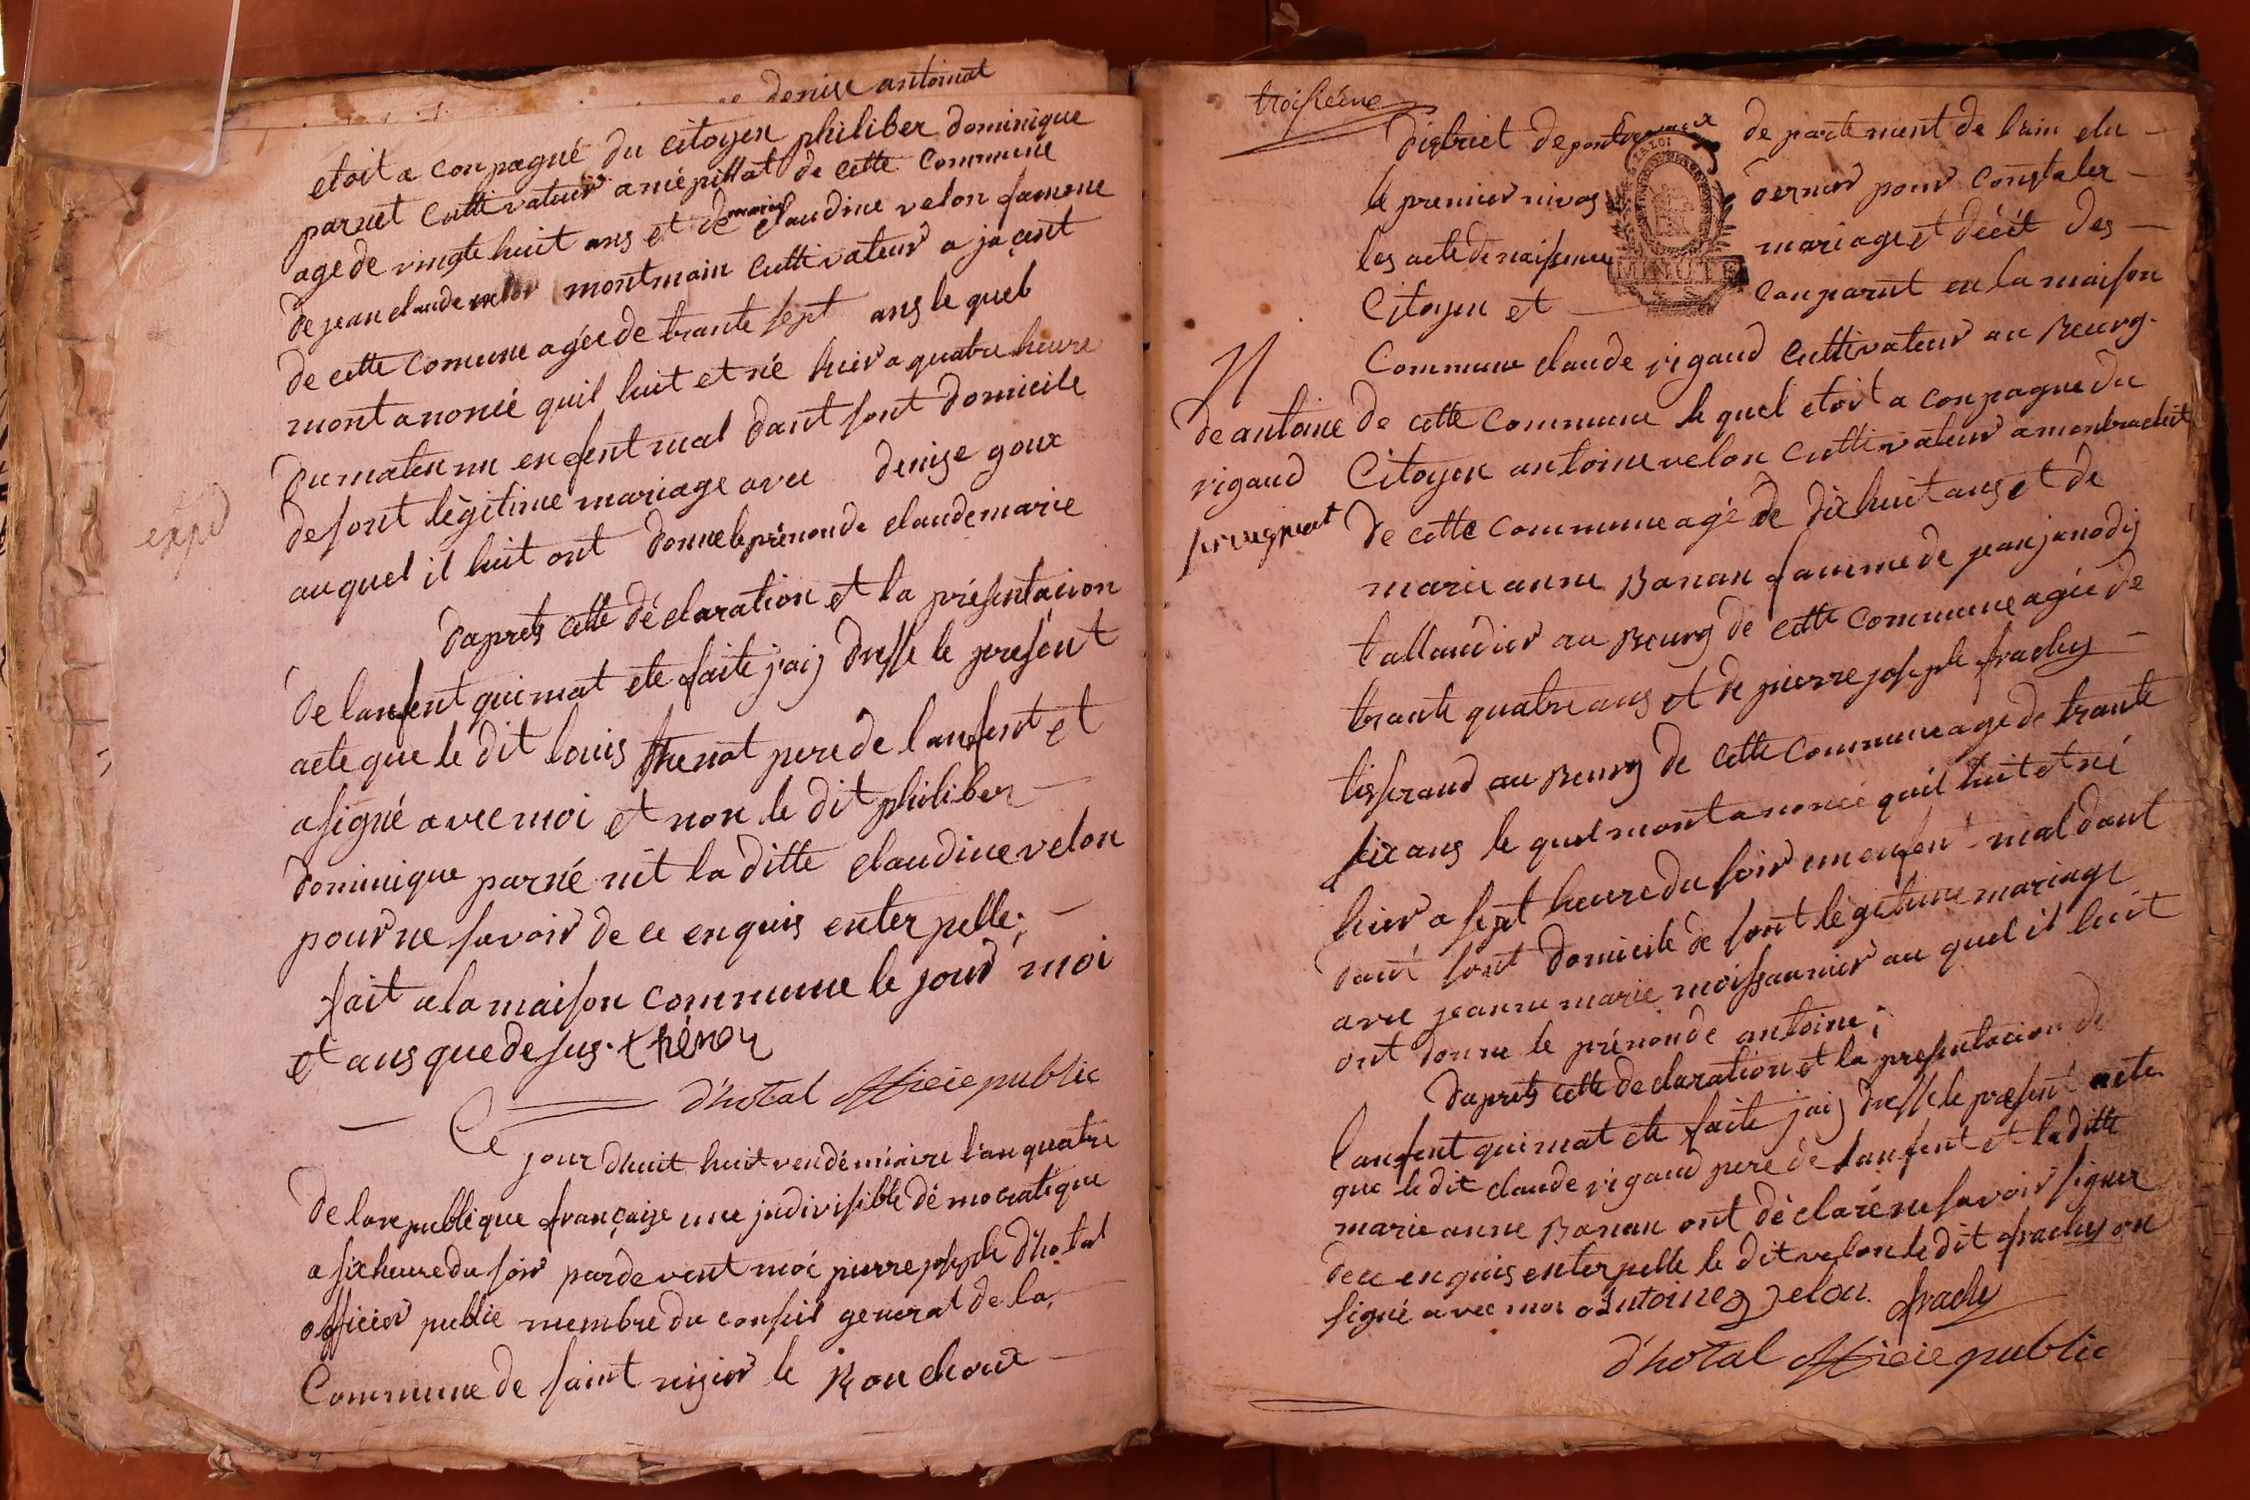 denise antoinat
etoit a conpagné du citoyen philiber dominique
parnet cultivateur a niépillat de cette commune
age de vingte huit ans et de marie claudine velon famme
de jean claude montmain cultivateur a jaçent
de cette comune agée de trante sept ans le quel
mont anoncé quil luit et né hier a quatre heure
du maten un enfent mal dant sont domicile
de sont lègitime mariage avec denise goux
expd
au quel il luit ont donne le prénon de claude marie
daprets cette dé claration et la présentacion
de lanfent qui mat ete faite j'aij dresse le présent
acte que le dit louis thenot pere de lanfent et
a signé avec moi et non le dit philiber
dominique parné nit la ditte claudine velon
pour ne savoir de ce enquis enterpelle.
fait a la maison commune le jour moi
et ans que de sus. thénoz
d'hotal officie public
Ce jour dhuit huit vendémiaire l'an quatre
de la republique française une jndivisible démocratique
a six heure du soir par devent moi pierre joseph d'hotal
officier public membre du conseil general de la
Commune de saint nizier le Bouchoux
troisiéme
district de pontdevaux de partement de lain elu
le premier nivos dernier pour constater
les acte de naissence mariage et décét des
Citoyen et conparut en la maison
LA LOI
MINUTE
N
Commune claude rigaud cultivateur au Bourg
de antoine de cette commune le quel etoit a conpagne du
rigaud Citoyen antoine velon cultivateur a montrachet
de cette commune agé de dix huit ans et de
marie anne Banan famme de jean janodij
tallandier au Bourg de cette commune agée de
trante quatre ans et de pierre joseph frachy
tisserand au Bourg de cette commune age de trante
six ans le quel mont a noncé quil luit et né
hier a sept heure du soir un enfent mal dant
dant sont domicile de sont lègetime mariage
avec jeanne marie moissaunier au quel il luit
ont donne le prénon de antoine ;
daprets cette declaration et la presentacion de
lanfent qui mat ete faite jaij dresse le present acte
que le dit claude rigaud pere de lanfent et la ditte
marie anne Banan ont déclaré ne savoir signer
de ce enquis enterpelle le dit velon le dit frachy on
signé avec moi antoine velon frachy
d'hotal officie public